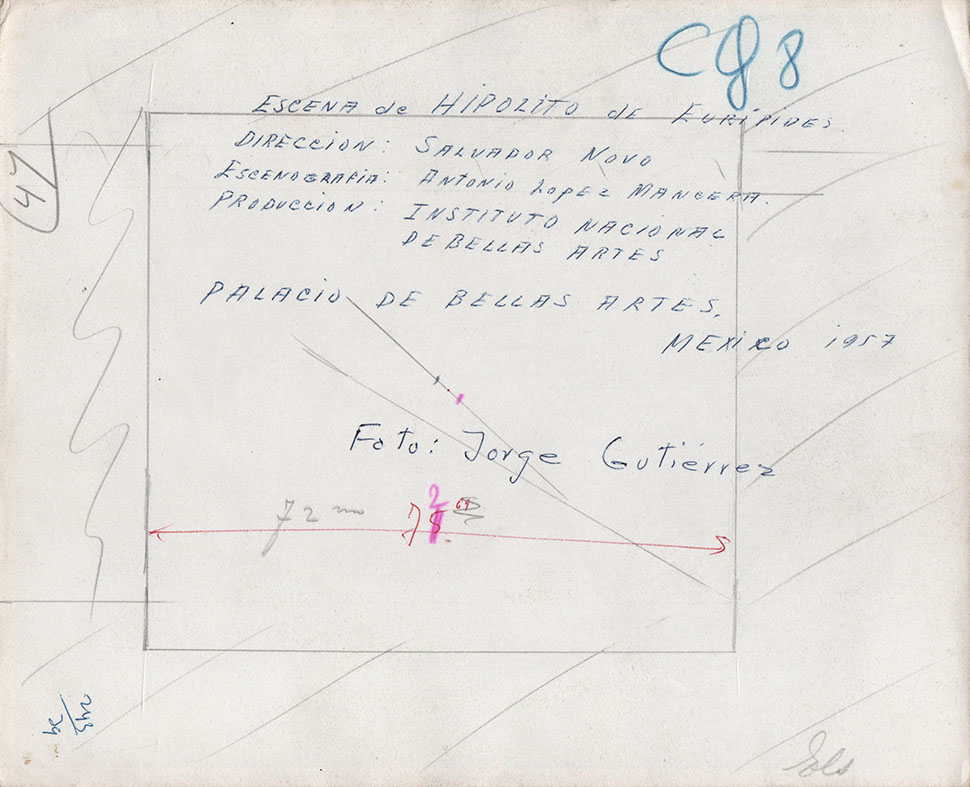 C98
47
ESCENA de HIPOLITO de EURIPIDES.
DIRECCION: SALVADOR NOVO
ESCENOGRAFIA: ANTONIO LOPEZ MANCERA.
PRODUCCION: INSTITUTO NACIONAL
DE BELLAS ARTES
PALACIO DE BELLAS ARTES.
MEXICO 1957
Foto: Jorge Gutiérrez
72 m